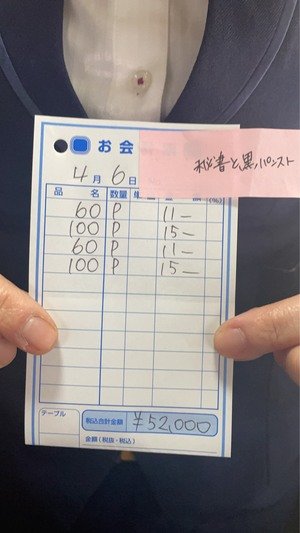 お会
秘書と黒パンスト
4月6日
品名 数量 単 (%)
60 P 11-
100 P 15-
60 P 11-
100 P 15-
テーブル
税込合計金額 ¥52,000
金額(税抜・税込)